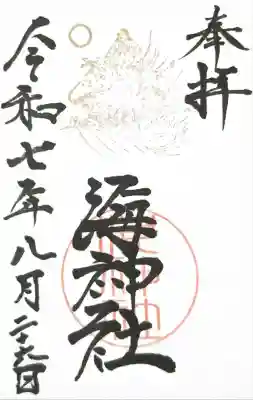 奉拝
海神社
令和七年八月二十九日